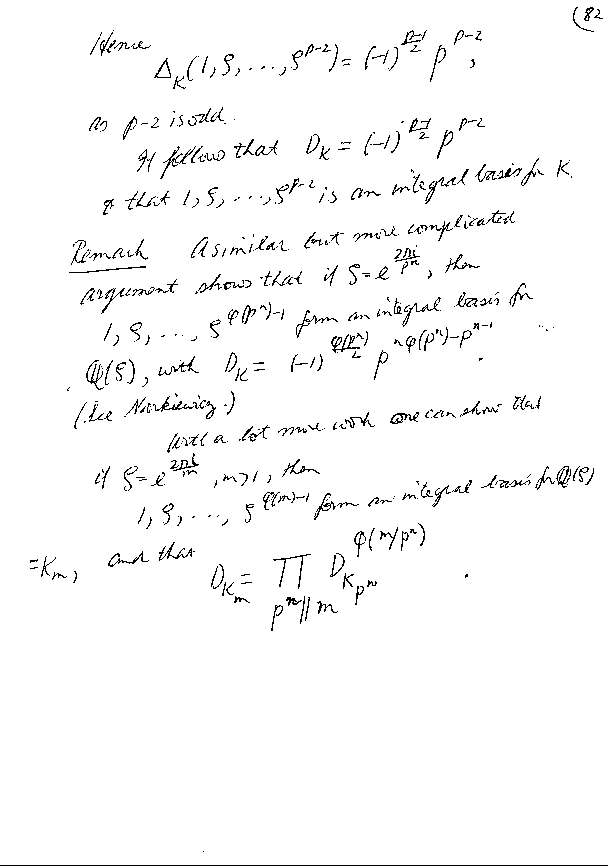 (82
Hence
Δ_K(1, ζ, ..., ζ^{p-2}) = (-1)^{\frac{p-1}{2}} p^{p-2},
as p-2 is odd.
It follows that D_K = (-1)^{\frac{p-1}{2}} p^{p-2}
& that 1, ζ, ..., ζ^{p-2} is an integral basis for K.
Remark A similar but more complicated
argument shows that if ζ = e^{\frac{2πi}{p^n}}, then
1, ζ, ..., ζ^{φ(p^n)-1} form an integral basis for
ℚ(ζ), with D_K = (-1)^{\frac{φ(p^n)}{2}} p^{nφ(p^n)-p^{n-1}}.
(See Narkiewicz.)
With a lot more work one can show that
if ζ = e^{\frac{2πi}{m}}, m>1, then
1, ζ, ..., ζ^{φ(m)-1} form an integral basis for ℚ(ζ)
= K_m, and that
D_{K_m} = ∏_{p^n||m} D_{K_{p^n}}^{φ(m/p^n)}.